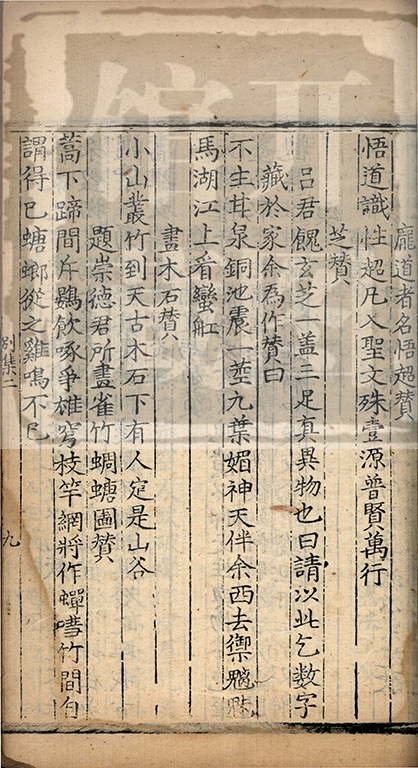 龐道者名悟超贊
悟道識性超凡入聖文殊壹源普賢萬行
芝贊
呂君餽玄芝一盖三足真異物也曰請以此乞数字
藏於家余為作贊曰
不生甘泉銅池震一莖九葉媚神天伴余西去禦魑魅
馬湖江上看蠻舡
畫木石贊
小山叢竹到天古木石下有人定是山谷
題崇德君所畫雀竹蜩螗圖贊
蒿下蹄間斥鷃飲啄爭雄穹枝竿網將作蟬噪竹間自
謂得已螗螂從之雞鳴不已
別集二
九